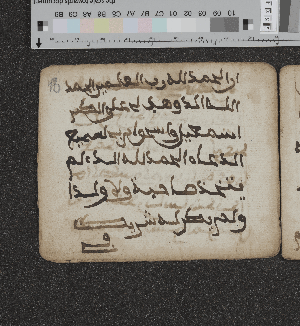 ان الحمد لله رب العلمين الحمد
لله الذي وهب لي على الكبر
اسمعيل واسحق ان ربي لسميع
الدعاء الحمد لله الذي لم
يتخذ صاحبة ولا ولدا
ولم يكن له شريك
في